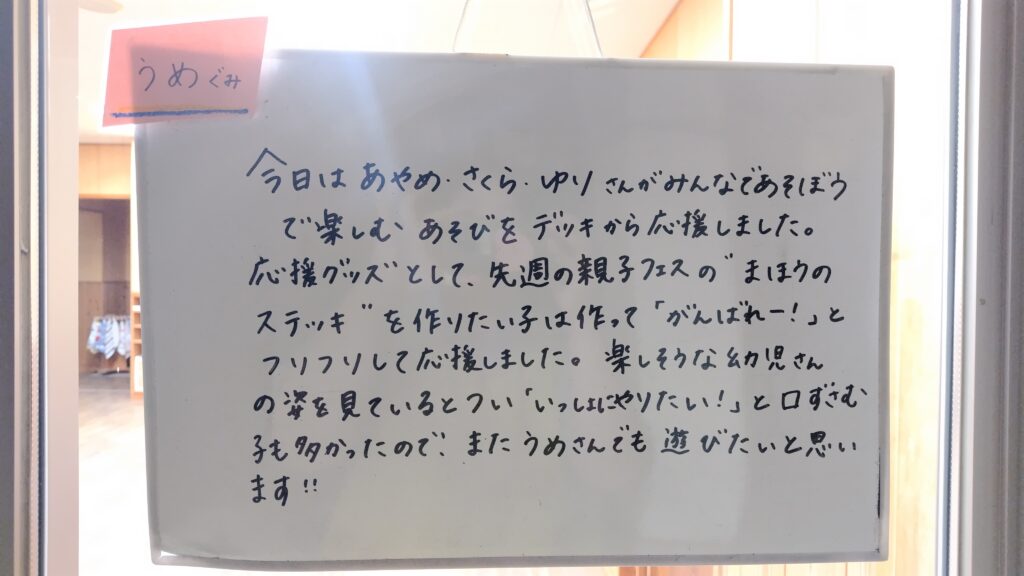 うめぐみ
今日は あやめ・さくら・ゆり さんがみんなであそぼう
で楽しむ あそびを デッキから応援しました。
応援グッズとして、先週の親子フェスの〝まほうの
ステッキ〟を作りたい子は作って「がんばれー!」と
フリフリして応援しました。楽しそうな幼児さん
の姿を見ているとつい「いっしょにやりたい!」と口ずさむ
子も多かったので、またうめさんでも 遊びたいと思い
ます!!